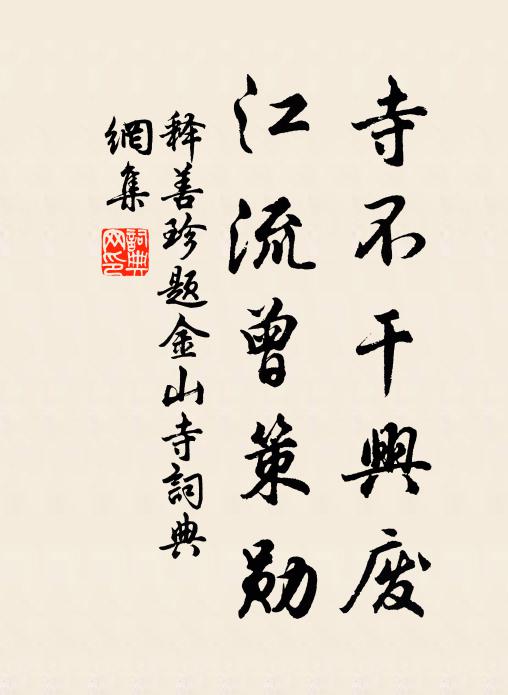 寺不干興废
江流曾策勋
释善珍题金山寺詞典
網集
詞典网印